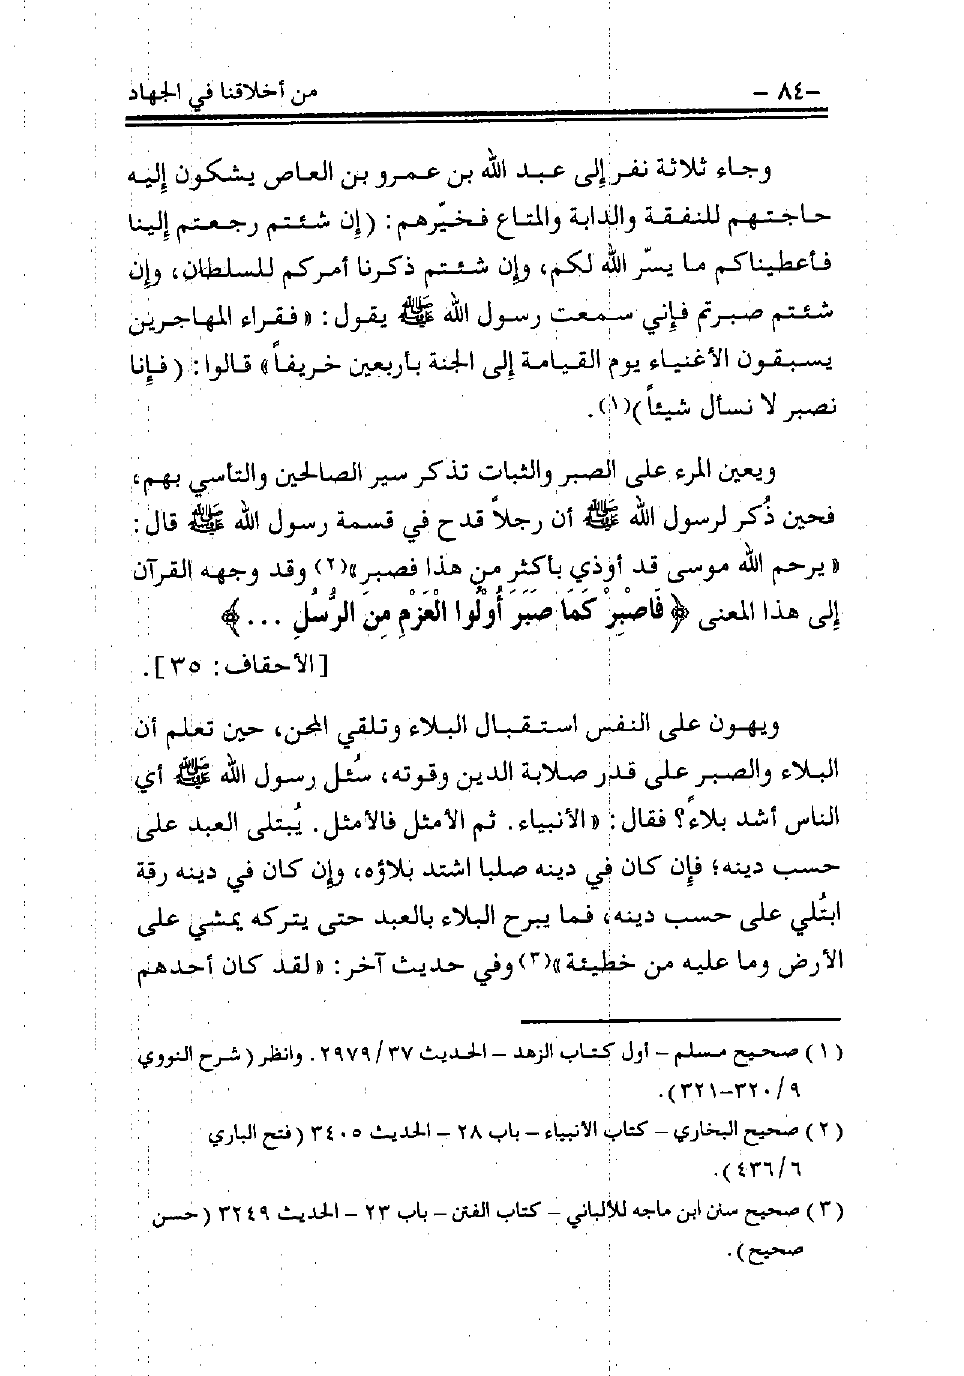 -٨٤ - من أخلاقنا في الجهاد
وجاء ثلاثة نفر إلى عبد الله بن عمرو بن العاص يشكون إليه
حاجتهم للنفقة والدابة والمتاع فخيّرهم: (إن شئتم رجعتم إلينا
فأعطيناكم ما يسّر الله لكم، وإن شئتم ذكرنا أمركم للسلطان، وإن
شئتم صبرتم فإني سمعت رسول الله ﷺ يقول: «فقراء المهاجرين
يسبقون الأغنياء يوم القيامة إلى الجنة بأربعين خريفاً» قالوا: (فإنا
نصبر لا نسأل شيئاً)(١).
ويعين المرء على الصبر والثبات تذكر سير الصالحين والتأسي بهم،
فحين ذُكر لرسول الله ﷺ أن رجلاً قدح في قسمة رسول الله ﷺ قال:
«يرحم الله موسى قد أوذي بأكثر من هذا فصبر»(٢) وقد وجهه القرآن
إلى هذا المعنى ﴿فَاصْبِرْ كَمَا صَبَرَ أُولُوا الْعَزْمِ مِنَ الرُّسُلِ ...﴾
[الأحقاف: ٣٥].
ويهون على النفس استقبال البلاء وتلقي المحن، حين تعلم أن
البلاء والصبر على قدر صلابة الدين وقوته، سُئل رسول الله ﷺ أي
الناس أشد بلاءً؟ فقال: «الأنبياء. ثم الأمثل فالأمثل. يُبتلى العبد على
حسب دينه؛ فإن كان في دينه صلبا اشتد بلاؤه، وإن كان في دينه رقة
ابتُلي على حسب دينه، فما يبرح البلاء بالعبد حتى يتركه يمشي على
الأرض وما عليه من خطيئة»(٣) وفي حديث آخر: «لقد كان أحدهم
(١) صحيح مسلم – أول كتاب الزهد – الحديث ٢٩٧٩/٣٧. وانظر (شرح النووي
٩/ ٣٢٠–٣٢١).
(٢) صحيح البخاري – كتاب الأنبياء – باب ٢٨ – الحديث ٣٤٠٥ (فتح الباري
٦/ ٤٣٦).
(٣) صحيح سنن ابن ماجه للألباني – كتاب الفتن – باب ٢٣ – الحديث ٣٢٤٩ (حسن
صحيح).